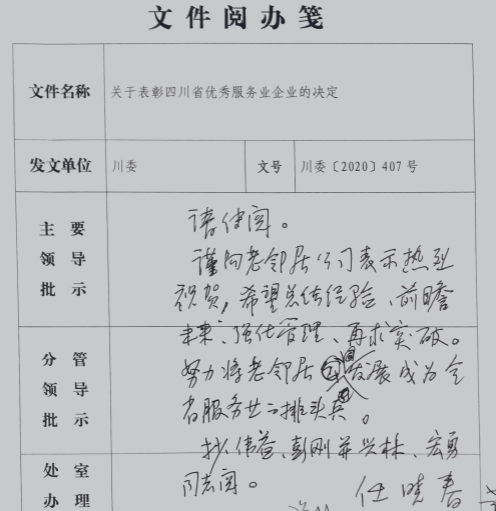 文件阅办笺
文件名称 关于表彰四川省优秀服务业企业的决定
发文单位 川委 文号 川委〔2020〕407号
主要领导批示
请传阅。
谨向老邻居公司表示热烈
祝贺，希望总结经验、前瞻
未来、强化管理、再求突破。
分管领导批示
努力将老邻居发展成为全
省服务业排头兵。
抄伟益、彭刚并兴林、宏勇
同志阅。
处室办理
任晓春